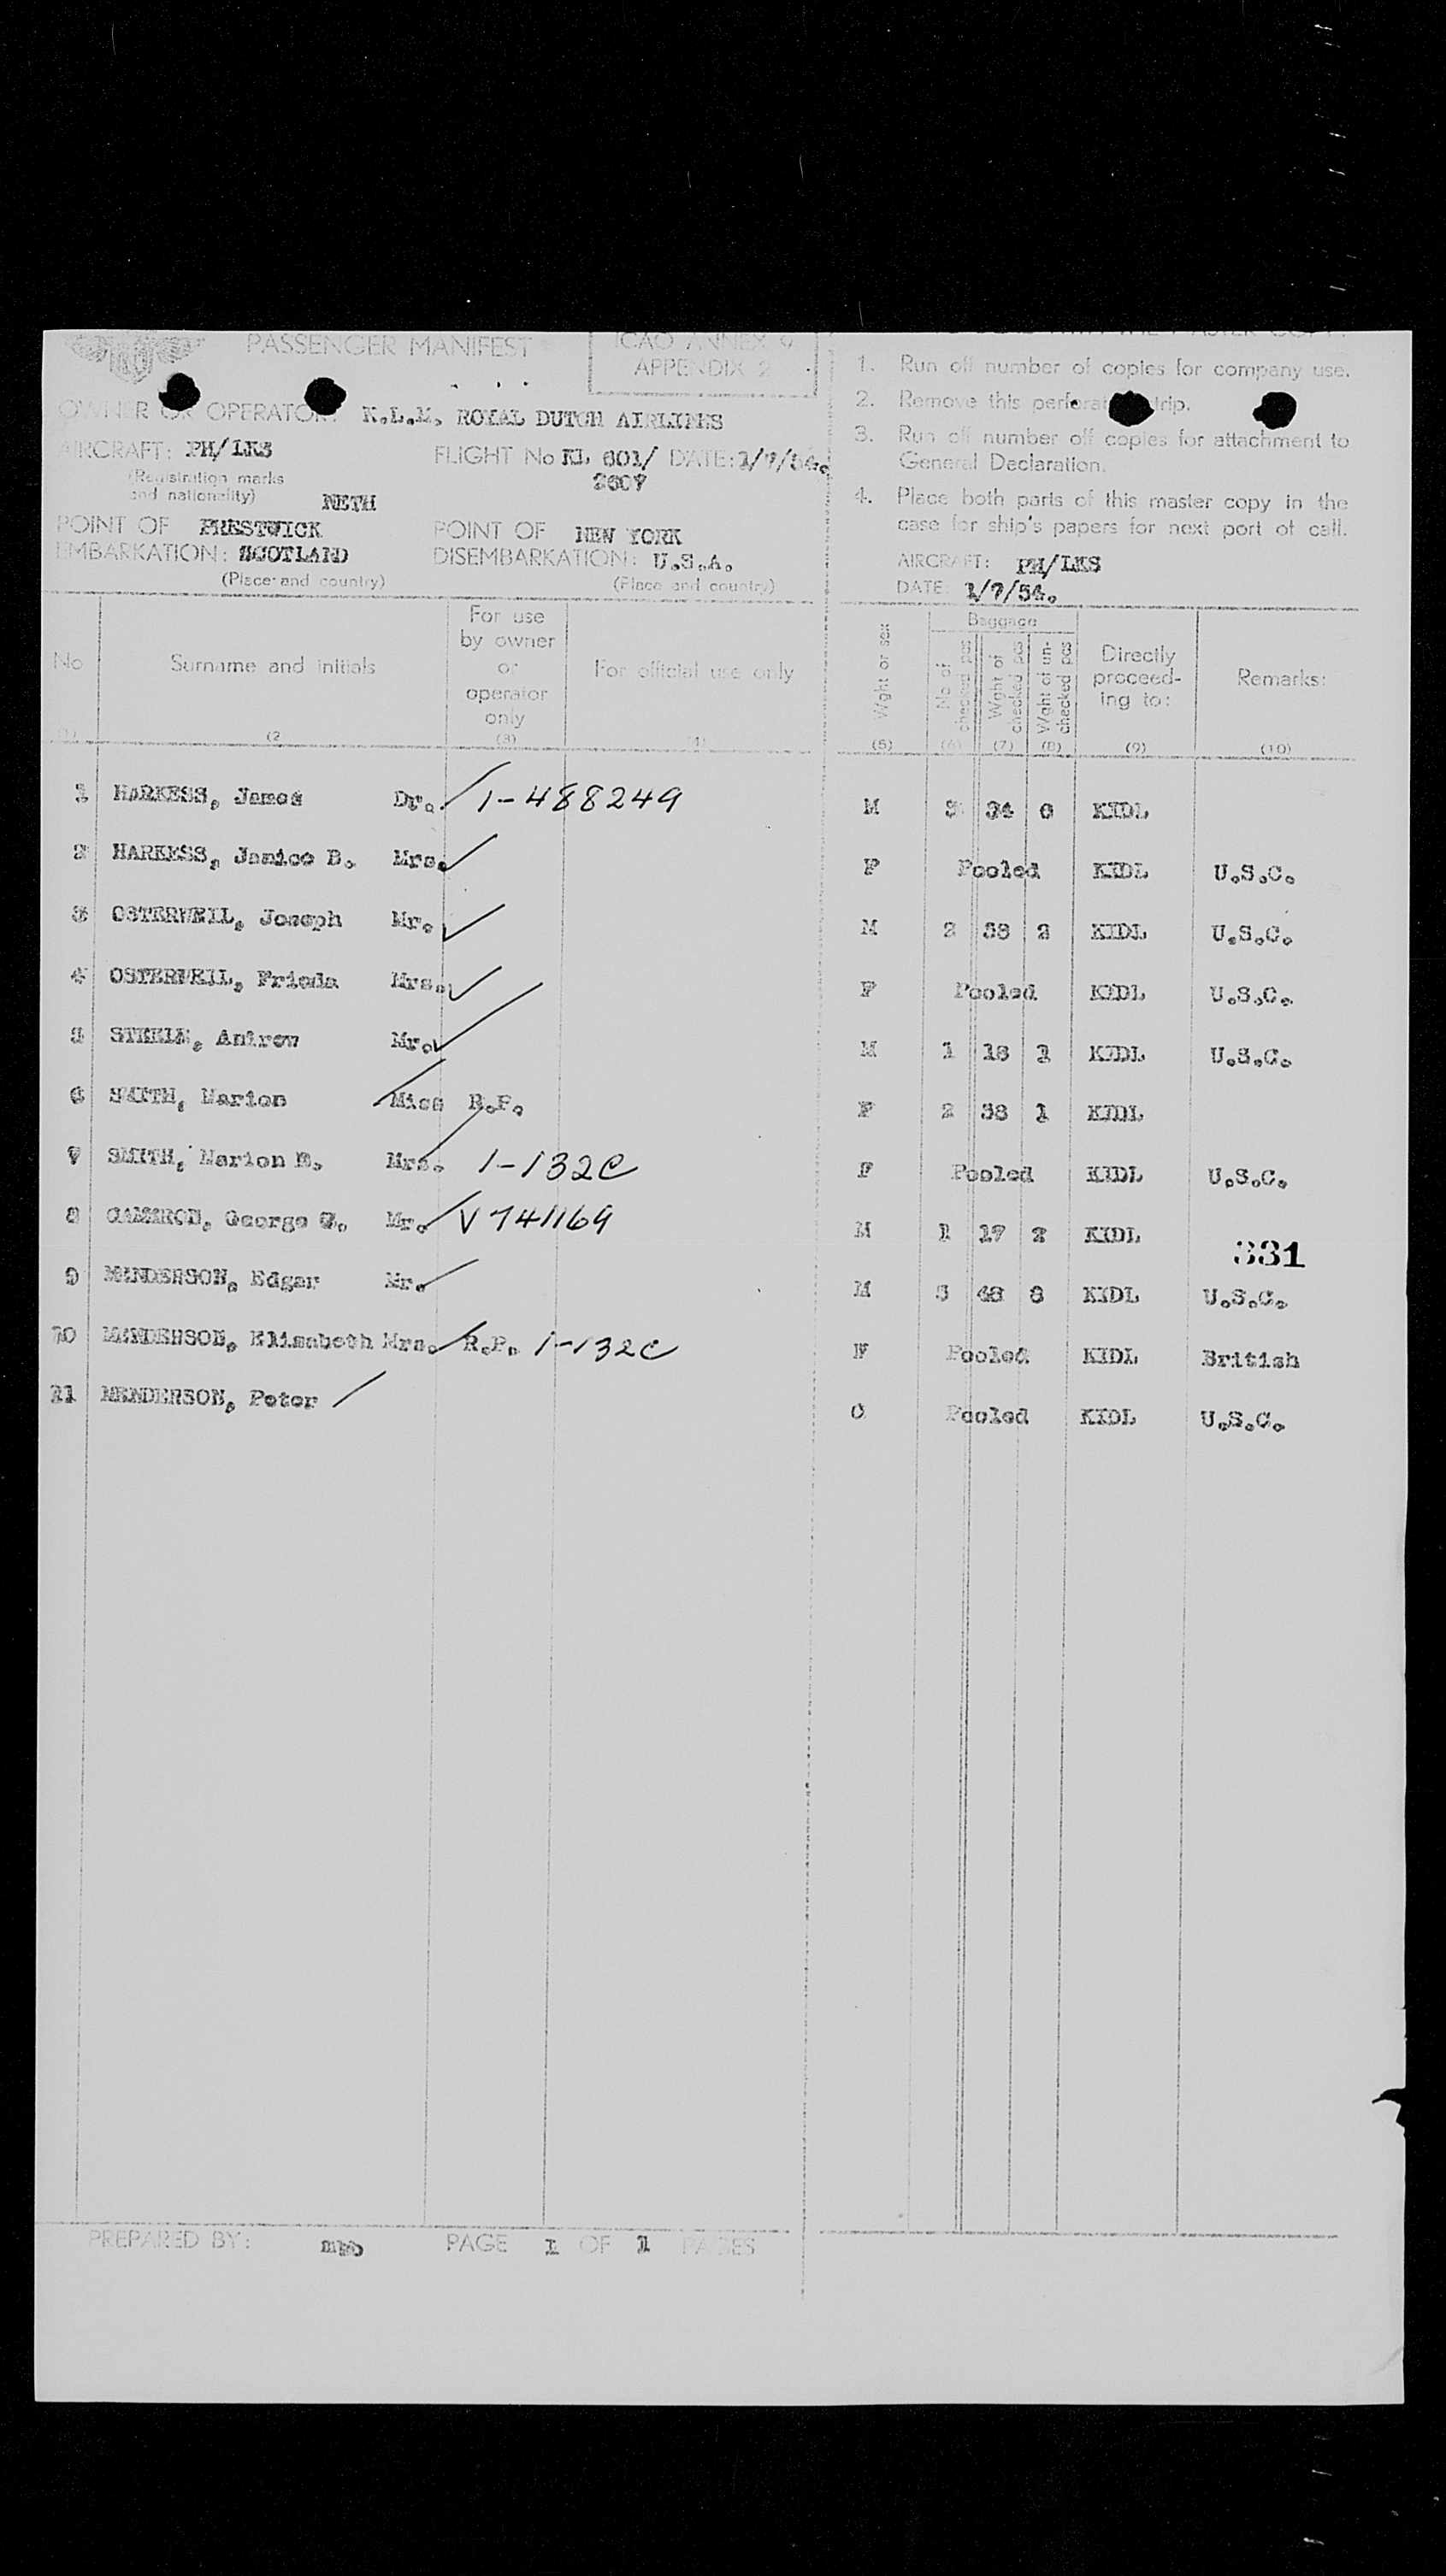 PASSENGER MANIFEST
ICAO ANNEX 9
APPENDIX 2
OWNER OR OPERATOR: K.L.M. ROYAL DUTCH AIRLINES
AIRCRAFT: PH/LKS
(Registration marks and nationality) NETH
FLIGHT No KL 601/2607 DATE: 1/7/54.
POINT OF EMBARKATION: PRESTWICK SCOTLAND
(Place and country)
POINT OF DISEMBARKATION: NEW YORK U.S.A.
(Place and country)
1. Run off number of copies for company use.
2. Remove this strip.
3. Run off number off copies for attachment to General Declaration.
4. Place both parts of this master copy in the case for ship's papers for next port of call.
AIRCRAFT: PH/LKS
DATE: 1/7/54.
No (1) Surname and initials (2 For use by owner or operator only (3) For official use only (4) Wght or sex (5) Baggage No of checked pcs (6) Wght of checked pcs (7) Wght of un-checked pcs (8) Directly proceed-ing to: (9) Remarks: (10)
1 HARKESS, James Dr. 1-488249 M 3 34 6 KIDL
2 HARKESS, Janice B. Mrs. F Pooled KIDL U.S.C.
3 OSTERWEIL, Joseph Mr. M 2 38 2 KIDL U.S.C.
4 OSTERWEIL, Frieda Mrs. F Pooled KIDL U.S.C.
5 Andrew Mr. M 1 18 1 KIDL U.S.C.
6 SMITH, Marion Miss R.P. F 2 38 1 KIDL
7 SMITH, Marion E. Mrs. 1-132C F Pooled KIDL U.S.C.
8 CAMERON, George G. Mr. V 741169 M 1 17 2 KIDL
331
9 MENDERSON, Edgar Mr. M 3 48 8 KIDL U.S.C.
10 MENDERSON, Elisabeth Mrs. R.P. 1-132C F Pooled KIDL British
11 MENDERSON, Peter C Pooled KIDL U.S.C.
PREPARED BY: PAGE 1 OF 1 PAGES